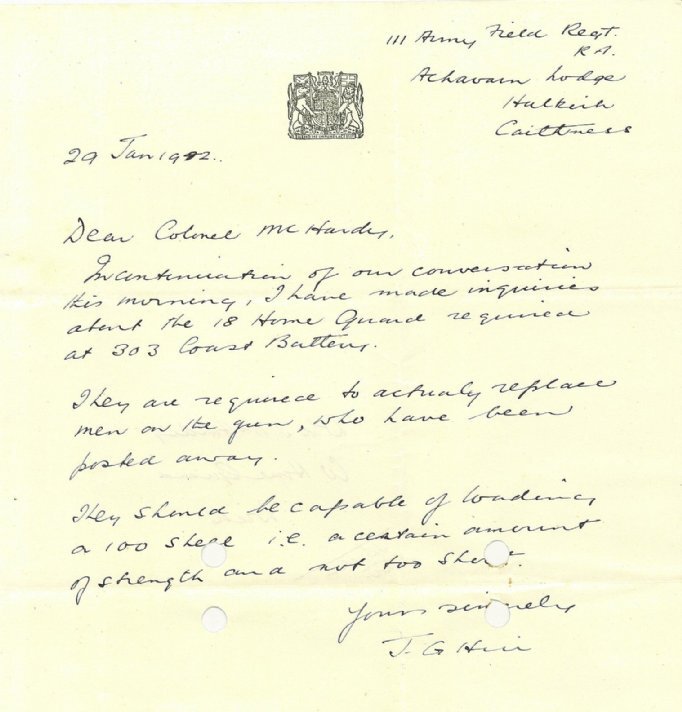 111 Army Field Regt.
R.A.
Achavarn Lodge
Halkirk
Caithness
29 Jan 1942.
Dear Colonel McHardy,
In continuation of our conversation
this morning, I have made inquiries
about the 18 Home Guard required
at 303 Coast Battery.
They are required to actualy replace
men on the gun, who have been
posted away.
They should be capable of loading
a 100 shell i.e. a certain amount
of strength and not too short.
Yours sincerely
J. G Hill